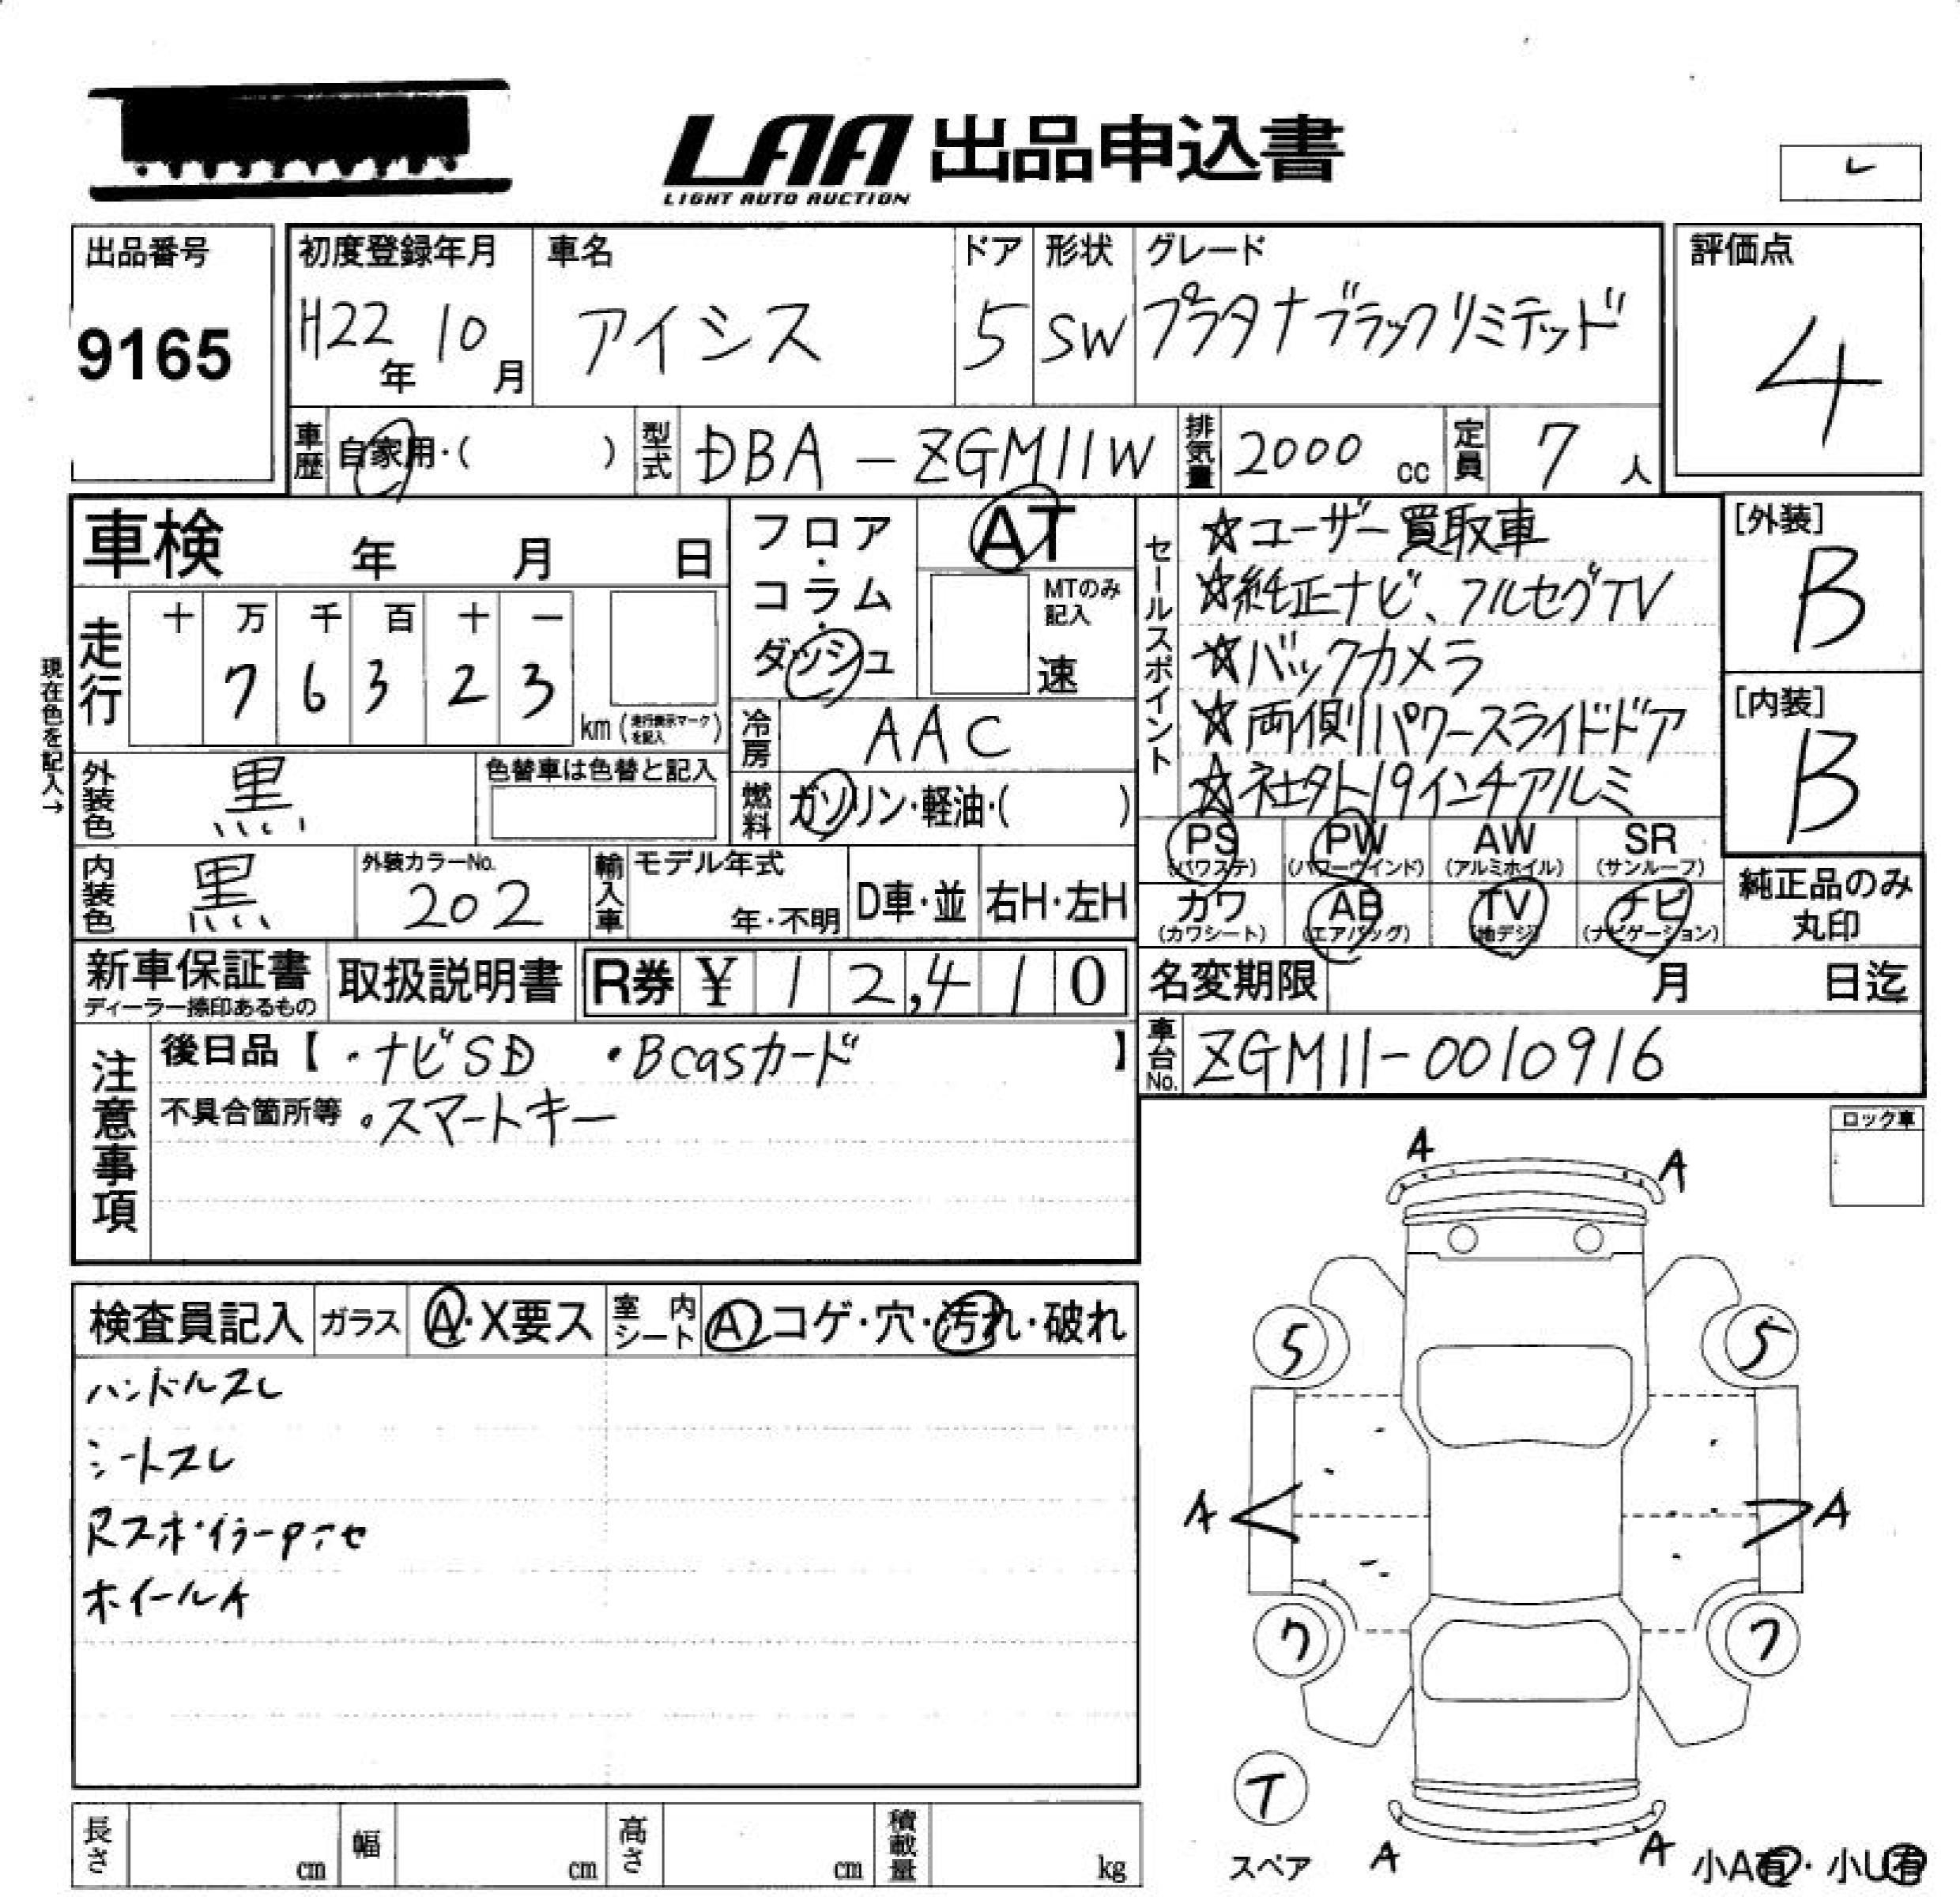 LAA 出品申込書
LIGHT AUTO AUCTION
出品番号
9165
初度登録年月
H22年 10月
車名
アイシス
ドア
5
形状
SW
グレード
プラタナブラックリミテッド
評価点
4
車歴 自家用・( )
型式 DBA-ZGM11W
排気量 2000 cc
定員 7 人
車検 年 月 日
現在色を記入→
走行
十 万 千 百 十 一
7 6 3 2 3
km (走行表示マークを記入)
フロア・コラム・ダッシュ
AT
MTのみ記入
速
冷房 AAC
燃料 ガソリン・軽油・( )
外装色 黒
色替車は色替と記入
内装色 黒
外装カラーNo.
202
輸入車 モデル年式
年・不明
D車・並
右H・左H
セールスポイント
☆ユーザー買取車
☆純正ナビ、フルセグTV
☆バックカメラ
☆両側パワースライドドア
☆社外19インチアルミ
[外装]
B
[内装]
B
PS (パワステ)
PW (パワーウインド)
AW (アルミホイル)
SR (サンルーフ)
カワ (カワシート)
AB (エアバッグ)
TV (地デジ)
ナビ (ナビゲーション)
純正品のみ
丸印
新車保証書
ディーラー捺印あるもの
取扱説明書
R券 ¥ 12,410
名変期限 月 日迄
車台No. ZGM11-0010916
注意事項
後日品【 ・ナビSD ・Bcasカード 】
不具合箇所等 ・スマートキー
ロック車
検査員記入
ガラス A・X要ス
室内シート A コゲ・穴・汚れ・破れ
ハンドルスレ
シートスレ
Rスポイラー
ホイールA
A A
5 5
A A
7 7
T
スペア
A A
小A有・小U有
長さ cm
幅 cm
高さ cm
積載量 kg